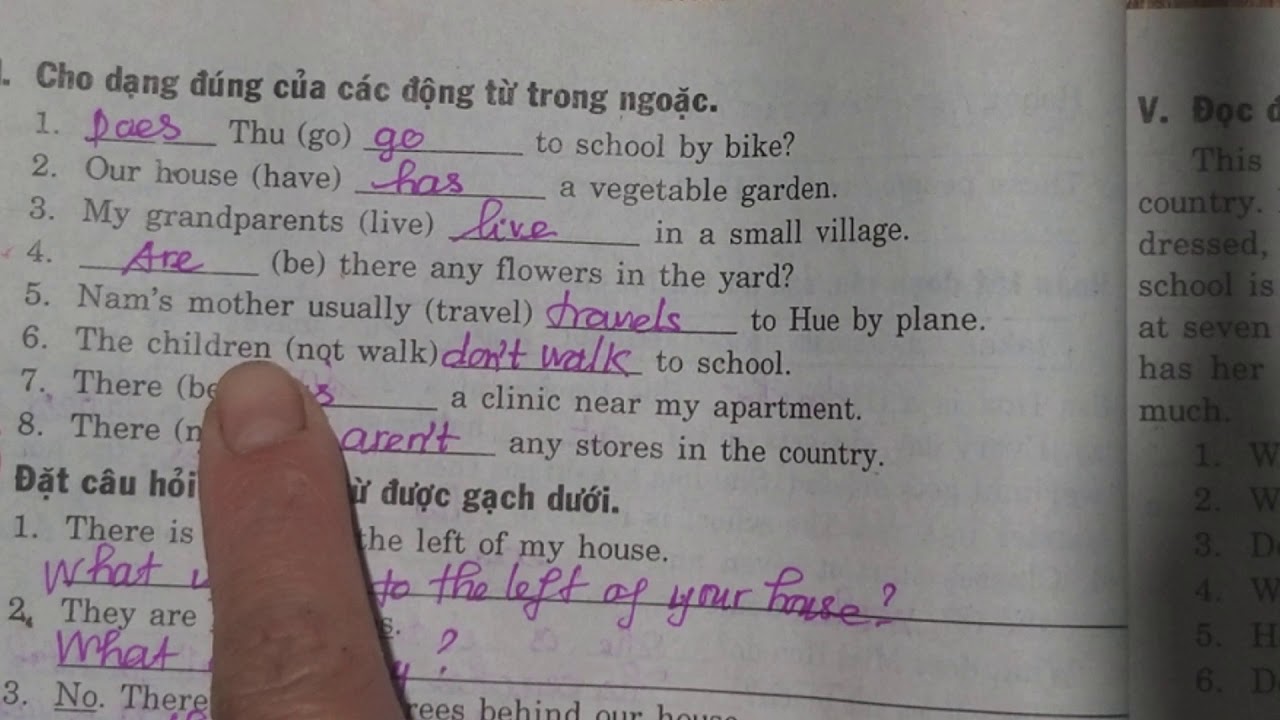 . Cho dạng đúng của các động từ trong ngoặc.
1. Does Thu (go) go to school by bike?
2. Our house (have) has a vegetable garden.
3. My grandparents (live) live in a small village.
4. Are (be) there any flowers in the yard?
5. Nam's mother usually (travel) travels to Hue by plane.
6. The children (not walk) don't walk to school.
7. There (be a clinic near my apartment.
8. There (n aren't any stores in the country.
Đặt câu hỏi từ được gạch dưới.
1. There is the left of my house.
What to the left of your house?
2. They are
What ?
3. No. There trees behind our house
V. Đọc
This
country.
dressed,
school is
at seven
has her
much.
1. W
2. W
3. D
4. W
5. H
6. D